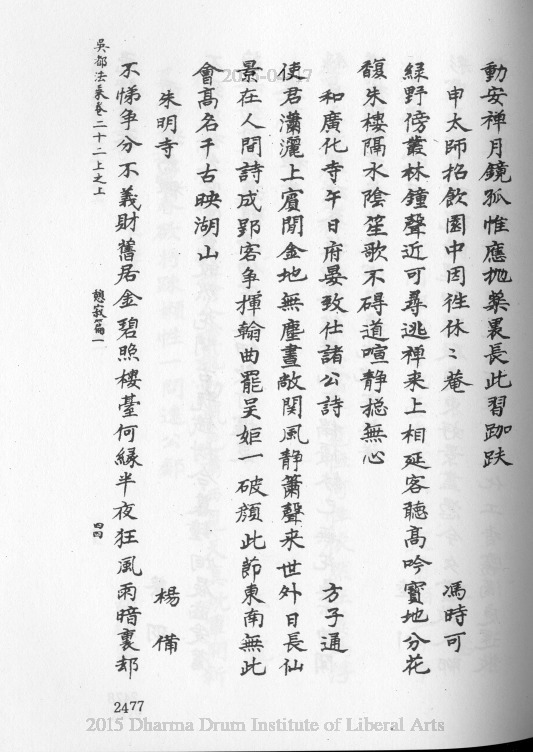 動安禅月鏡孤惟應抛藥裹長此習跏趺
申太師招飲園中因徃休〻菴　馮時可
緑野傍叢林鐘聲近可尋逃禅来上相延客聽髙吟寳地分花
馥朱樓隔水陰笙歌不碍道喧静揔無心
和廣化寺午日府晏致仕諸公詩　方子通
使君瀟灑上賓閒金地無塵晝敞関風静簫聲来世外日長仙
景在人間詩成郢客争揮翰曲罷吴姬一破顔此節東南無此
會髙名千古映湖山
朱明寺　楊備
不悌争分不義財舊居金碧照樓臺何縁半夜狂風雨暗裏却
吳都法乘卷二十二上之上　憩寂篇一　四四
2477
2015 Dharma Drum Institute of Liberal Arts